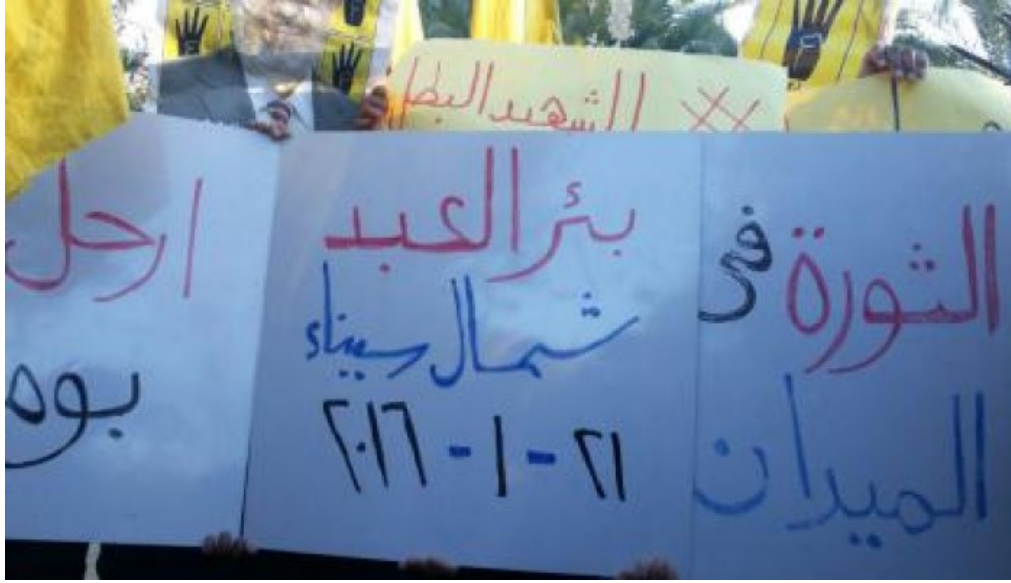 الشهيد البطل
الثورة في
الميدان
بئر العبد
شمال سيناء
٢١ - ١ - ٢٠١٦
ارحل